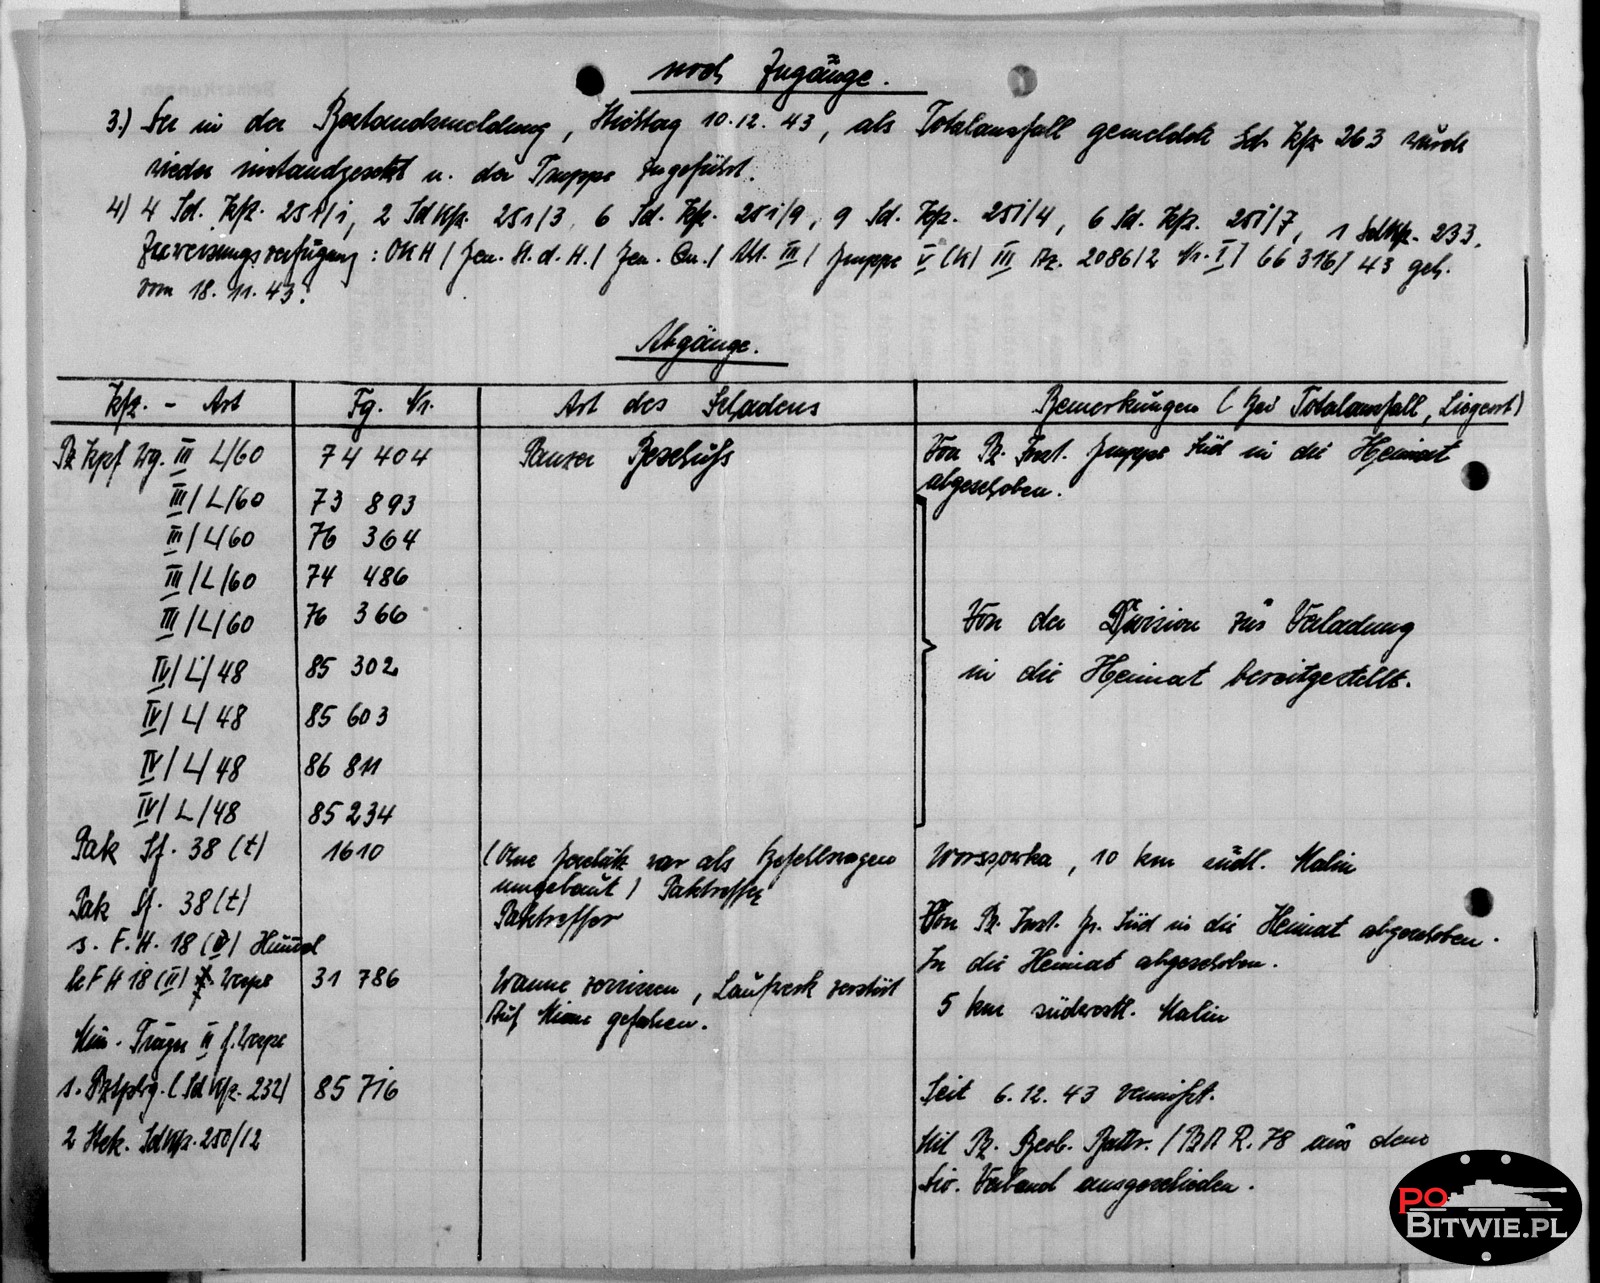 noch Zugänge.
3.) Der in der Bestandsmeldung, Stichtag 10.12.43, als Totalausfall gemeldete Sd. Kfz 263 wurde
wieder instandgesetzt u. der Truppe zugeführt.
4) 4 Sd. Kfz. 251/1, 2 Sd Kfz. 251/3, 6 Sd. Kfz. 251/9, 9 Sd. Kfz. 251/4, 6 Sd. Kfz. 251/7, 1 Sd Kfz. 233.
Zuweisungsverfügung: OKH / Gen. St. d. H. / Gen. Qu. / Abt. III / Gruppe V (K) III Az. 2086/2 Nr. I / 66 316/ 43 geh.
vom 18. 11. 43.
Abgänge.
Kfz. - Art Fg. Nr. Art des Schadens Bemerkungen (bei Totalausfall, Liegeort)
Pz Kpf Wg. III L/60 74 404 Panzer Beschuß Von Pz. Inst. Gruppe Süd in die Heimat
abgeschoben.
III/L/60 73 893
III/L/60 76 364
III/L/60 74 486
III/L/60 76 366 Von der Division zur Verladung
IV/L/48 85 302 in die Heimat bereitgestellt.
IV/L/48 85 603
IV/L/48 86 811
IV/L/48 85 234
Pak Sf. 38 (t) 1610 (Ohne Geschütz war als Befehlswagen Worssowka, 10 km südl. Malin
umgebaut) Paktreffer
Pak Sf. 38 (t) Paktreffer Von Pz. Inst. Gr. Süd in die Heimat abgeschoben.
s. F. H. 18 (II) Hummel In die Heimat abgeschoben.
le F H 18 (II) Wespe 31 786 Wanne zerrissen, Laufwerk zerstört 5 km südwestl. Malin
Auf Mine gefahren.
Mun. Träger II f. Wespe
s. Pz Spwg. (Sd Kfz. 232) 85 716 Seit 6.12.43 vermißt.
2 Stck. Sd Kfz. 250/12 Mit Pz. Beob. Battr. / Pz A R. 78 aus dem
Div. Verband ausgeschieden.
PO
BITWIE.PL